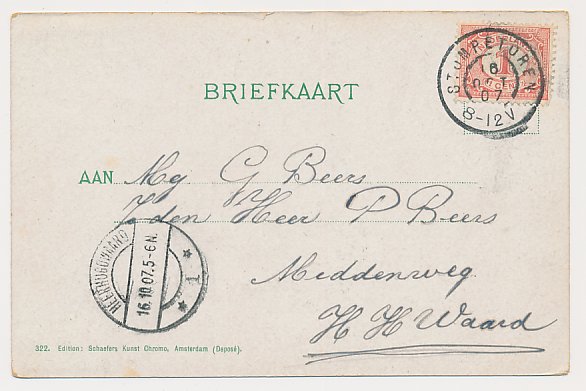 STOMPETOREN
8
OCT
07
8-12V
1
CENT
BRIEFKAART
AAN Mej G Beers
Heer P Beers
Middenweg
H H Waard
HEERHUGOWAARD
16.10.07.5-6N.
1
322. Edition: Schaefers Kunst Chromo, Amsterdam (Deposé).